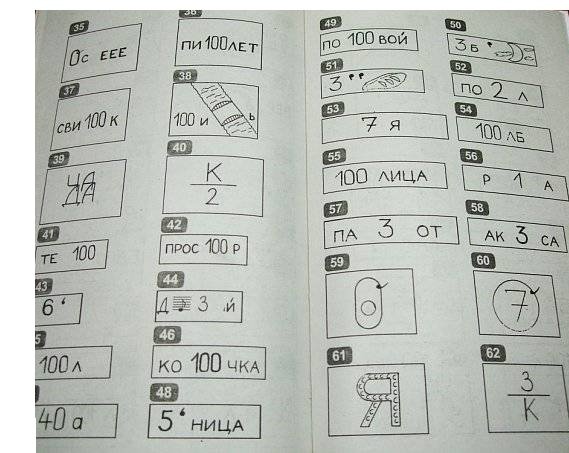 35
Ос ЕЕЕ
36
ПИ100ЛЕТ
37
СВИ 100 К
38
100 И Ь
39
ЧА
ДА
40
К
2
41
ТЕ 100
42
ПРОС 100 Р
43
6 ‘
44
Д 3 ,Й
5
100 Л
46
КО 100 ЧКА
40 а
48
5 ‘ НИЦА
49
ПО 100 ВОЙ
50
3 Б '
51
3 ' '
52
ПО 2 Л
53
7 Я
54
100 ЛБ
55
100 ЛИЦА
56
Р 1 А
57
ПА 3 ОТ
58
АК 3 СА
59
60
7
61
Я
62
3
К